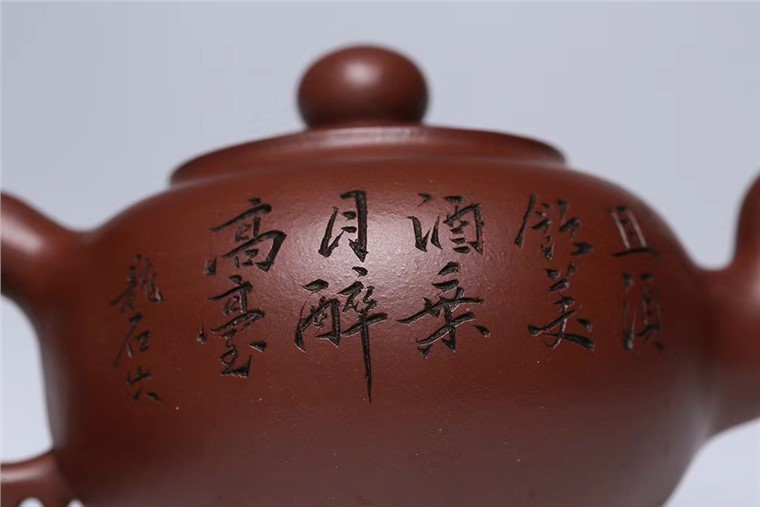 且須
飲美
酒乗
月醉
高臺
龍石六